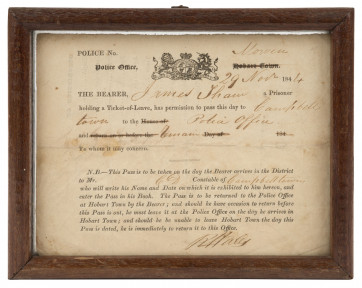 POLICE No. Morven
Police Office, Hobart Town.
29 Novr 1844
THE BEARER, James Shaw a Prisoner
holding a Ticket-of-Leave, has permission to pass this day to Campbell
town to the House of Police Office
and return on or before the remain Day of 184
To whom it may concern.
N.B.—This Pass is to be taken on the day the Bearer arrives in the District
to Mr. Constable of Campbell town
who will write his Name and Date on which it is exhibited to him hereon, and
enter the Pass in his Book. The Pass is to be returned to the Police Office
at Hobart Town by the Bearer; and should he have occasion to return before
this Pass is out, he must leave it at the Police Office on the day he arrives in
Hobart Town; and should he be unable to leave Hobart Town the day this
Pass is dated, he is immediately to return it to this Office.